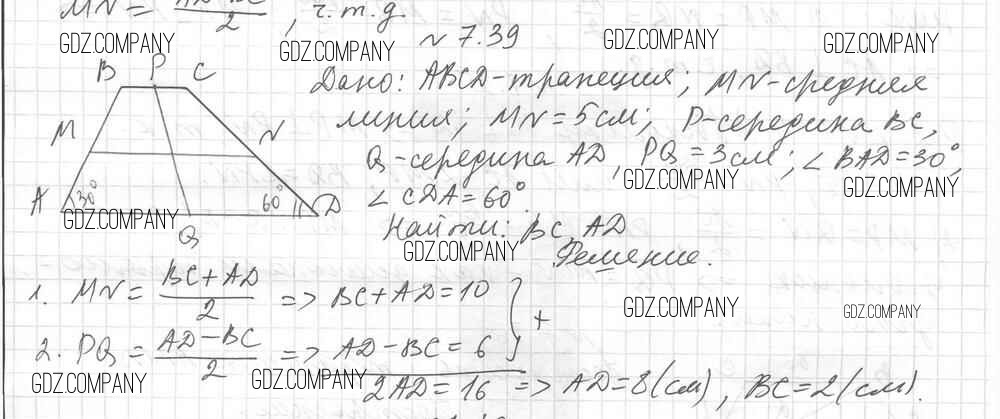 MN = (AD-BC)/2 , ч.т.д.
GDZ.COMPANY GDZ.COMPANY GDZ.COMPANY GDZ.COMPANY
N 7.39
B P C
Дано: ABCD-трапеция; MN-средняя
M N
линия; MN=5см; P-середина BC,
Q-середина AD, PQ=3см; ∠BAD=30°,
GDZ.COMPANY GDZ.COMPANY
A 30° 60° D
∠CDA=60°
GDZ.COMPANY
Q
Найти: BC, AD
GDZ.COMPANY
Решение.
1. MN = (BC+AD)/2 => BC+AD=10
+
GDZ.COMPANY GDZ.COMPANY
2. PQ = (AD-BC)/2 => AD-BC=6
GDZ.COMPANY GDZ.COMPANY
2AD=16 => AD=8(см), BC=2(см).